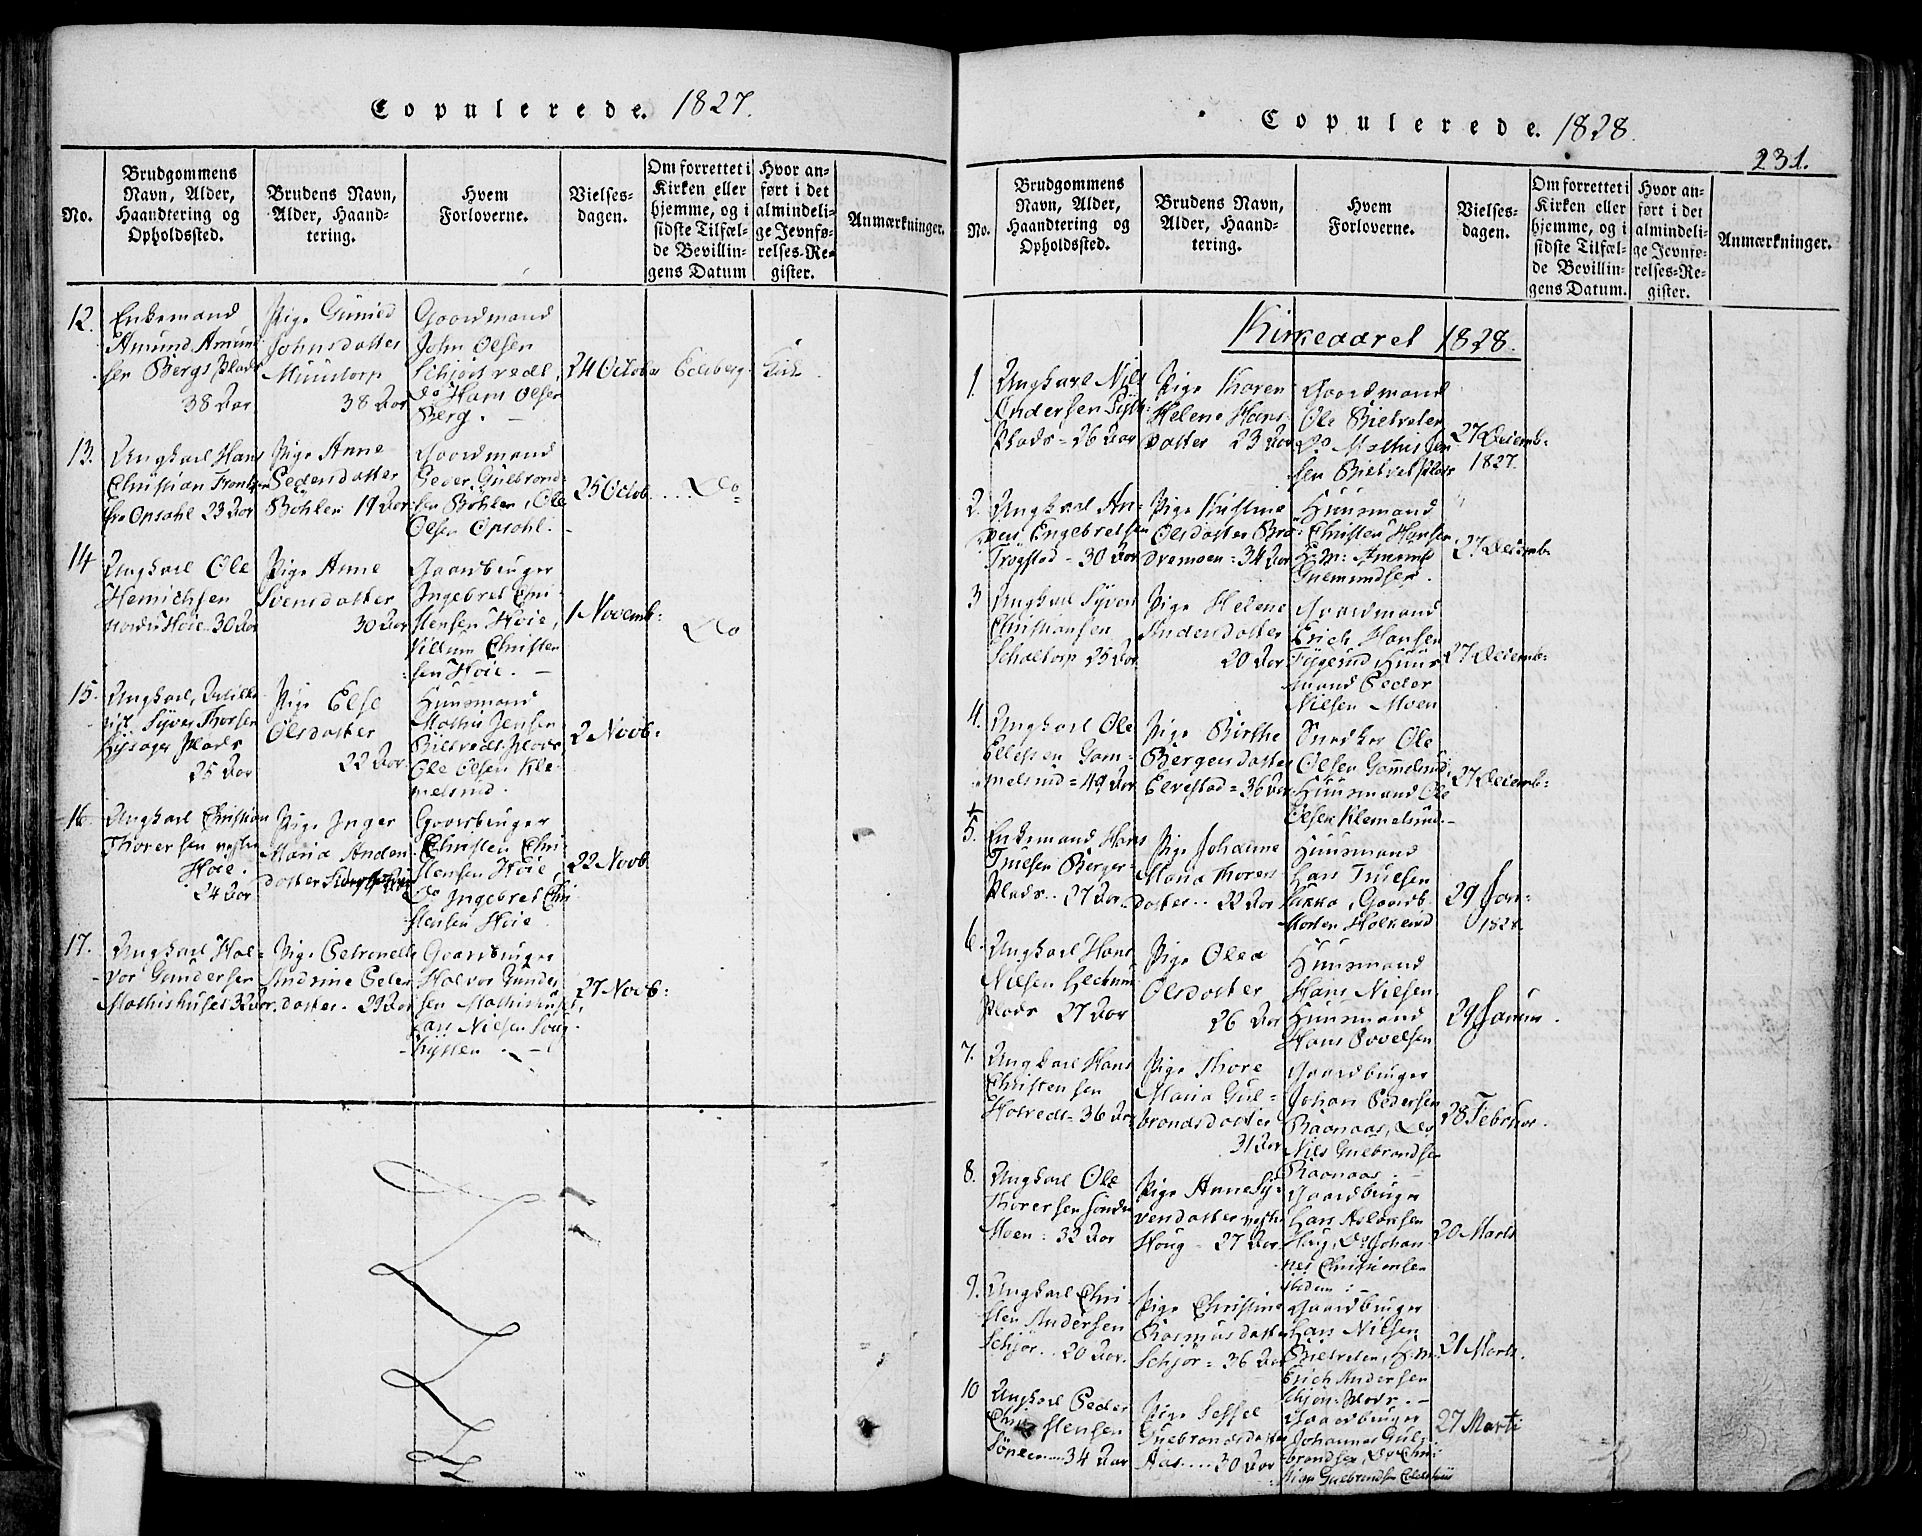 Copulerede. 1827.
No.
Brudgommens
Navn, Alder,
Haandtering og
Opholdssted.
Brudens Navn,
Alder, Haand-
tering.
Hvem
Forloverne.
Vielses-
dagen.
Om forrettet i
Kirken eller
hjemme, og i
sidste Tilfæl-
de Bevillin-
gens Datum
Hvor an-
ført i det
almindeli-
ge Jevnfø-
relses-Re-
gister.
Anmærkninger.
12.
Enkemand
Amund Amund
sen Bergs Plads
38 Aar
Pige Gunild
Johnsdatter
38 Aar
Gaardmand
John Olsen
do Hans Olsen
Berg. -
24 Octob
Edsberg
Kirke
13.
Ungkarl Hans
Christian
fra Opsahl 23 Aar
Pige Anne
Pedersdatter
Böhler 19 Aar
Gaardmand
Peder Gulbrand
sen Böhler, Ole
Olsen Opsahl. -
25 Octob.
Do
14
Ungkarl Ole
Henrichsen
nordre Höie 30 Aar
Pige Anne
Svensdatter
30 Aar
Gaardbruger
Ingebret Chri-
stensen Höie,
Villum Christen
sen Höie. -
1 Novemb:
Do
15.
Ungkarl,
Syver Thorsen
Plads
25 Aar
Pige Else
Olsdatter
22 Aar
Huusmand
Mathis Jensen
Ole Olsen Kle-
melsrud.
2 Novb:
16.
Ungkarl Christian
Thoresen vestre
Höie.
24 Aar
Pige Inger
Maria Anders
datter
Gaardbruger
Christen Chri-
stensen Höie,
do Ingebret Chri
stensen Höie
22 Novb
17.
Ungkarl Hal-
vor Gundersen
Mathishuset 32 Aar.
Pige Petronelle
Andrine Peders
datter. 29 Aar
Gaardbruger
Halvor Gunder
sen Mathishuset,
Lars Nielsen
27 Novb:
Copulerede. 1828.
231.
No.
Brudgommens
Navn, Alder,
Haandtering og
Opholdssted.
Brudens Navn,
Alder, Haand-
tering.
Hvem
Forloverne.
Vielses-
dagen.
Om forrettet i
Kirken eller
hjemme, og i
sidste Tilfæl-
de Bevillin-
gens Datum.
Hvor an-
ført i det
almindeli-
ge Jevnfø-
relses-Re-
gister.
Anmærkninger.
Kirkeaaret 1828.
1.
Ungkarl Nils
Andersen
Plads - 26 Aar
Pige Karen
Helene Hans-
datter 23 Aar
Gaardmand
Ole Bielvelen
Do Mathis Jen
sen
27 Decemb:
1827.
2.
Ungkarl An-
ders Engebretsen
Trögstad - 30 Aar
Pige Kistine
Olsdatter Bra-
dremoen = 34 Aar
Huusmand
Christen Hansen
H:m: Amund
Guemundsen.
27 Decemb.
3
Ungkarl Syver
Christiansen
25 Aar
Pige Helene
Andersdatter
20 Aar
Gaardmand
Erich Hansen
Huus
mand Peder
Nielsen Moen
27 Decemb:
4.
Ungkarl Ole
Ellefsen Gam-
melsrud = 49 Aar
Pige Birthe
Bergersdatter
Elvestad = 36 Aar
Snedker Ole
Olsen Gammelsrud,
Huusmand Ole
Olsen Klemelsrud. -
27 Decemb:
5.
Enkemand Hans
Truelsen Berger-
Plads.. 27 Aar.
Pige Johanne
Maria Thores
datter.. 22 Aar
Huusmand
Lars Truelsen
Hakka, Gaardb.
Morten
29 Jan:
1828.
6.
Ungkarl Hans
Nielsen
Plads 27 Aar
Pige Olea
Olsdatter
26 Aar
Huusmand
Hans Nielsen
Huusmand
Hans Povelsen
29 Januar.
7.
Ungkarl Hans
Christensen
Holvedt - 36 Aar
Pige Thore
Maria Gul-
brandsdatter
31 Aar
Gaardbruger
Johan Pedersen
Raanaas, Do
Nils Gulbrandsen
Raanaas. -
28 Februar.
8.
Ungkarl Ole
Thoresen söndre
Moen : 32 Aar
Pige Anne Sy-
versdatter vestre
Houg - 27 Aar
Gaardbruger
Lars Aslaksen
Haug, Do Johan
nes Christiansen
ibidem : -
20 Marts
9.
Ungkarl Chri
sten Andersen
Schjör.. 20 Aar.
Pige Christine
Rasmusdatter
Schjör = 36 Aar
Gaardbruger
Lars Nielsen
Bielvelen, H:m.
Erich Andersen
Schjör-Plads. -
21 Marts.
10
Ungkarl Peder
Christensen
34 Aar
Pige Sessel
Gulbrandsdatter
Aas.... 30 Aar
Gaardbruger
Johannes Gul-
brandsen, Do Chri-
stian Gulbrandsen
27 Marti